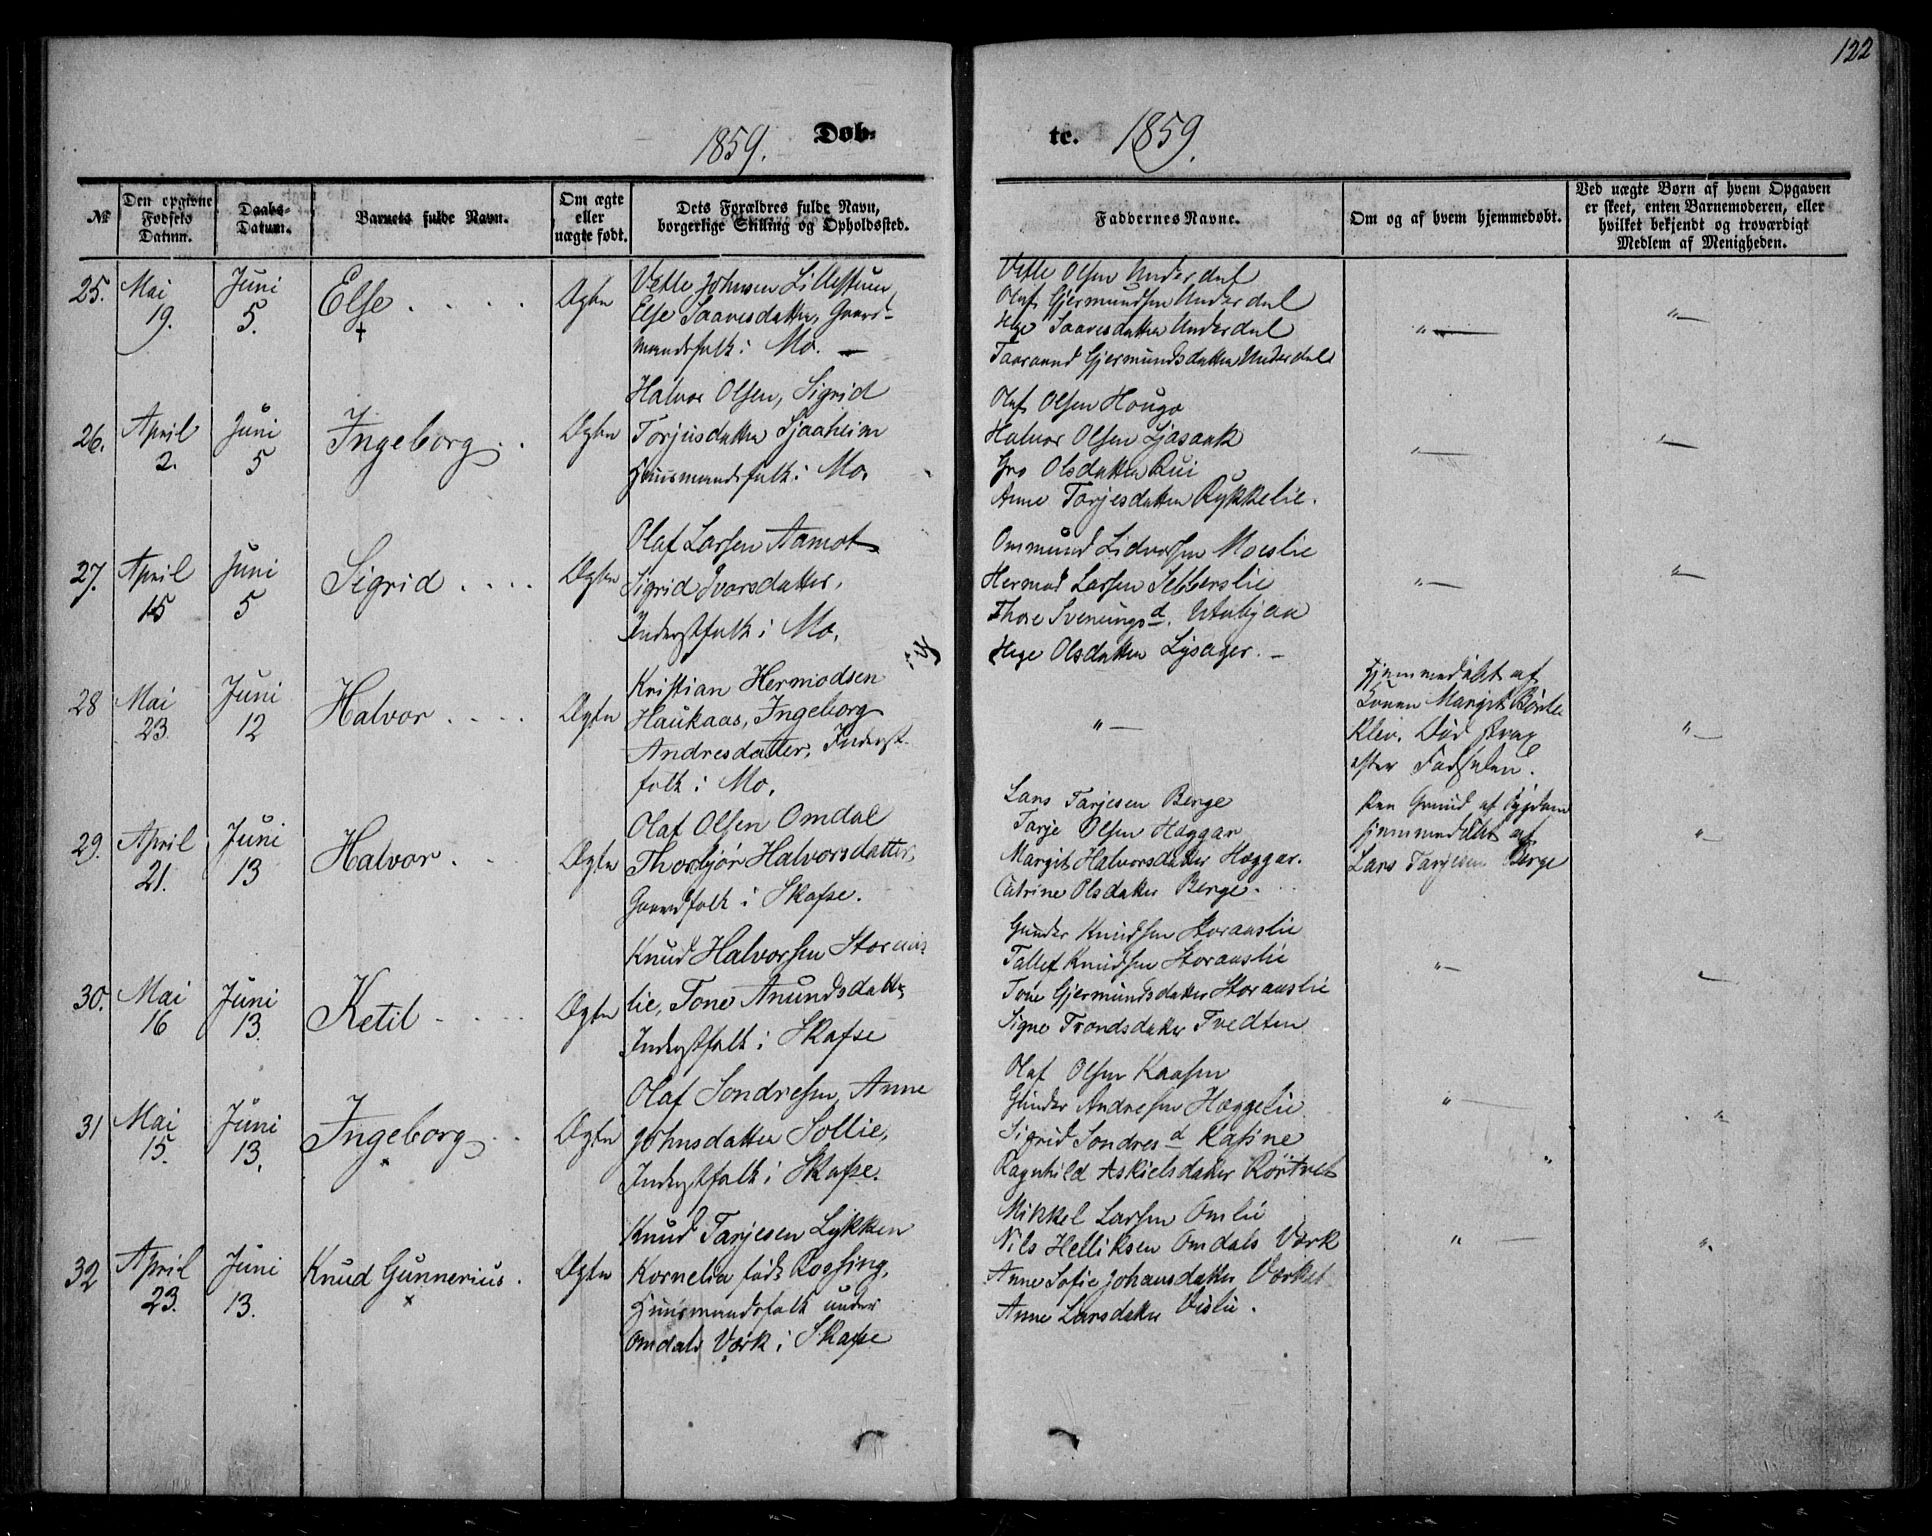 122
1859. Döb-
te. 1859.
№
Den opgivne Fødsels Datum.
Daabs-Datum.
Barnets fulde Navn.
Om ægte eller uægte født.
Dets Forældres fulde Navn, borgerlige Stilling og Opholdssted.
Faddernes Navne.
Om og af hvem hjemmedøbt.
Ved uægte Børn af hvem Opgaven er skeet, enten Barnemoderen, eller hvilket bekjendt og troværdigt Medlem af Menigheden.
25. Mai 19. Juni 5. Else Ægte
Vetle Johnsen Lillestuen
Else Saavesdatter, Gaard-
mandsfolk i Mo.
Vetle Olsen Underdal
Oluf Gjermundsen Underdal
Hege Saavesdatter Underdal
Taaraand Gjermundsdatter Underdal
26. April 2. Juni 5 Ingeborg Ægte
Halvor Olsen, Sigrid
Torjusdatter Sjaaheim
Huusmandsfolk i Mo.
Oluf Olsen Hougo
Halvor Olsen Ljosaak
Gro Olsdatter Rui
Anne Torjesdatter Rykkelie.
27. April 15 Juni 5 Sigrid Ægte
Olaf Larsen Aamot
Sigrid Ivarsdatter,
Inderstfolk i Mo.
Ommund Lidvorsen Moeslie
Hermod Larsen Sebberslie
Thore Svenungsd. Utabjaa
Hege Olsdatter Lysager.
28 Mai 23. Juni 12 Halvor Ægte
Kristian Hermodsen
Haukaas, Ingeborg
Andresdatter, Inderst-
folk i Mo.
Hjemmedøbt af
Konen Margit Børte
Kleiv. Død strax
efter Fødselen.
29. April 21. Juni 13 Halvor Ægte
Olaf Olsen Omdal
Thorbjør Halvorsdatter,
Gaardfolk i Skafse.
Lars Tarjesen Berge
Tarje Olsen Hæggar
Margit Halvorsdatter Hæggar.
Catrine Olsdatter Berge.
Paa Grund af Sygdom
hjemmedøbt af
Lars Tarjesen Berge
30. Mai 16 Juni 13. Ketil Ægte
Knud Halvorsen Storaus-
lie, Tone Anundsdatter
Inderstfolk i Skafse
Gunder Knudsen Storauslie
Tallef Knudsen Storauslie
Tone Gjermundsdatter Storauslie
Signe Trondsdatter Tvedten
31 Mai 15. Juni 13. Ingeborg Ægte
Olaf Sondresen, Anne
Johnsdatter Sollie,
Inderstfolk i Skafse.
Olaf Olsen Kaasen
Gunder Andresen Hæggelie
Sigrid Sondresd Kasine
Ragnhild Askielsdatter Rörtvet
32 April 23. Juni 13. Knud Gunnerius. Ægte
Knud Tarjesen Lykken
Kornelia født Rossing,
Huusmandsfolk under
Omdals Værk i Skafse
Mikkel Larsen Omlie
Nils Helliksen Omdals Værk
Anne Sofie Johansdatter Værket
Anne Larsdatter Vislie.